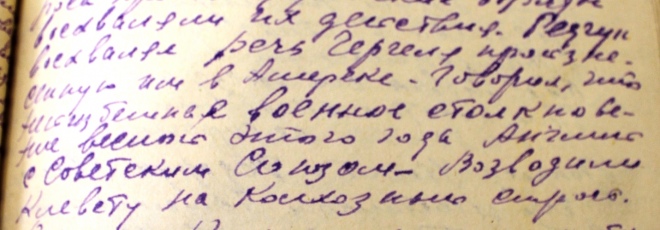 восхваляли их действия. Редчук
восхвалял речь Черчеля произне-
сенную им в Америке. Говорил, что
неизбежная военное столкнове-
ние весной этого года Англии
с Советским Союзом. Возводили
клевету на колхозный строй.